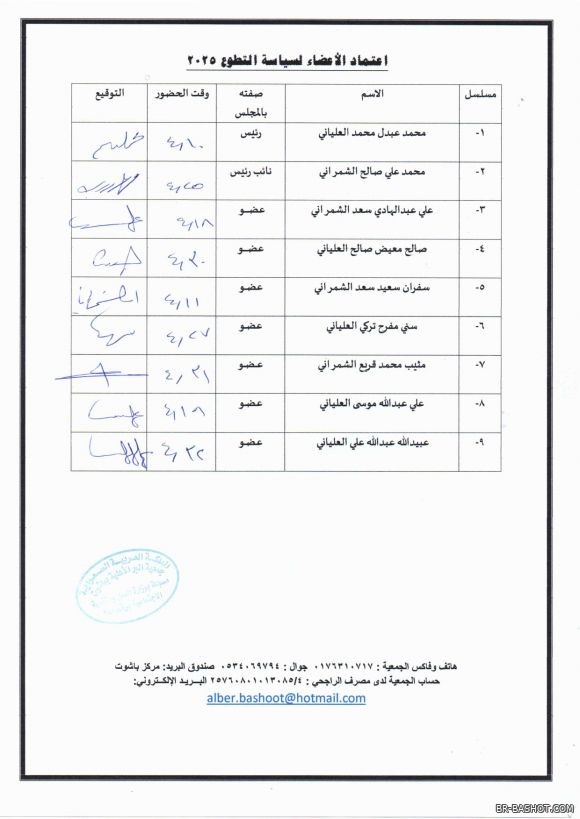 اعتماد الأعضاء لسياسة التطوع ٢٠٢٥
مسلسل الاسم صفته بالمجلس وقت الحضور التوقيع
١- محمد عبدل محمد العلياني رئيس ٤,١٠
٢- محمد علي صالح الشمراني نائب رئيس ٤,٢٥
٣- علي عبدالهادي سعد الشمراني عضو ٤,١٨
٤- صالح معيض صالح العلياني عضو ٤,٢٠
٥- سفران سعيد سعد الشمراني عضو ٤,١١
٦- سني مفرح تركي العلياني عضو ٤,٢٧
٧- مثيب محمد قريع الشمراني عضو ٤,٢١
٨- علي عبدالله موسى العلياني عضو ٤,١٥
٩- عبيدالله عبدالله علي العلياني عضو ٤,٢٢
المملكة العربية السعودية
هاتف وفاكس الجمعية : ٠١٧٦٣١٠٧١٧ جوال : ٠٥٣٤٠٦٩٧٩٤ صندوق البريد: مركز باشوت
حساب الجمعية لدى مصرف الراجحي : ٢٥٧٦٠٨٠١٠١٣٠٨٥/٤ البـريـد الإلكتروني:
alber.bashoot@hotmail.com
BR-BASHOT.COM